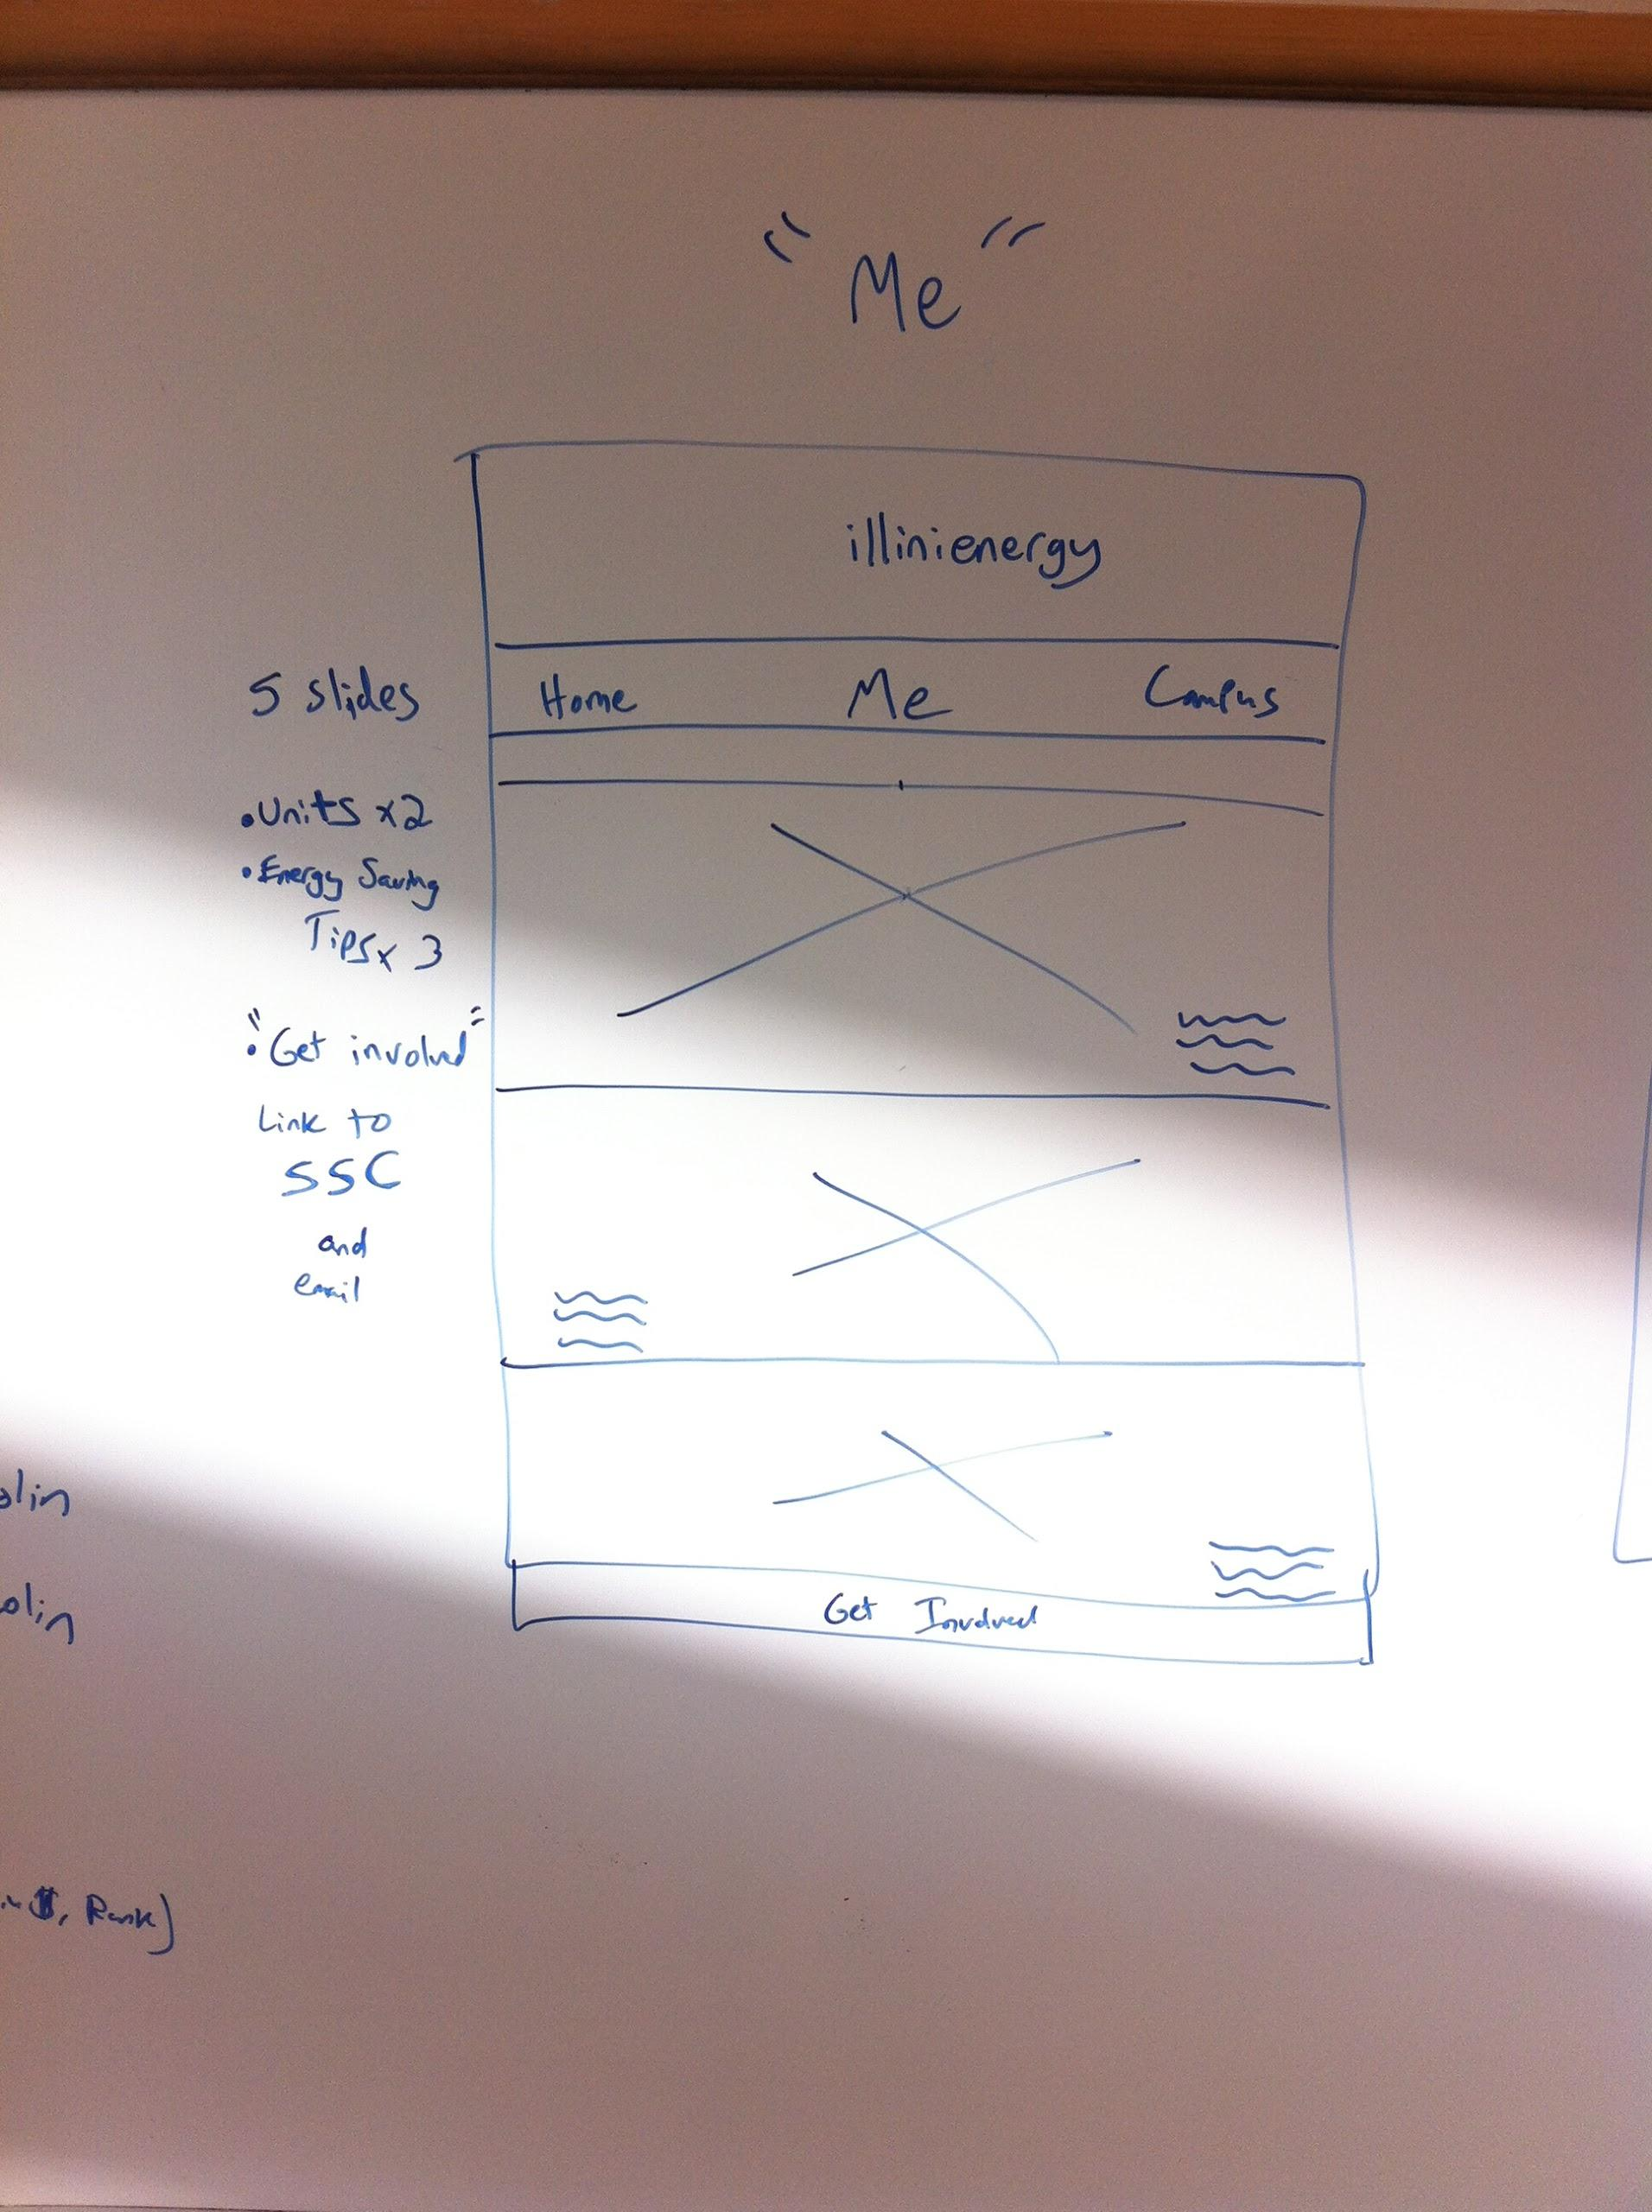 "Me"
illinienergy
Home Me Campus
5 slides
• Units x2
• Energy Saving
Tips x 3
• "Get involved"
Link to
SSC
and
email
Get Involved
$, Rank)